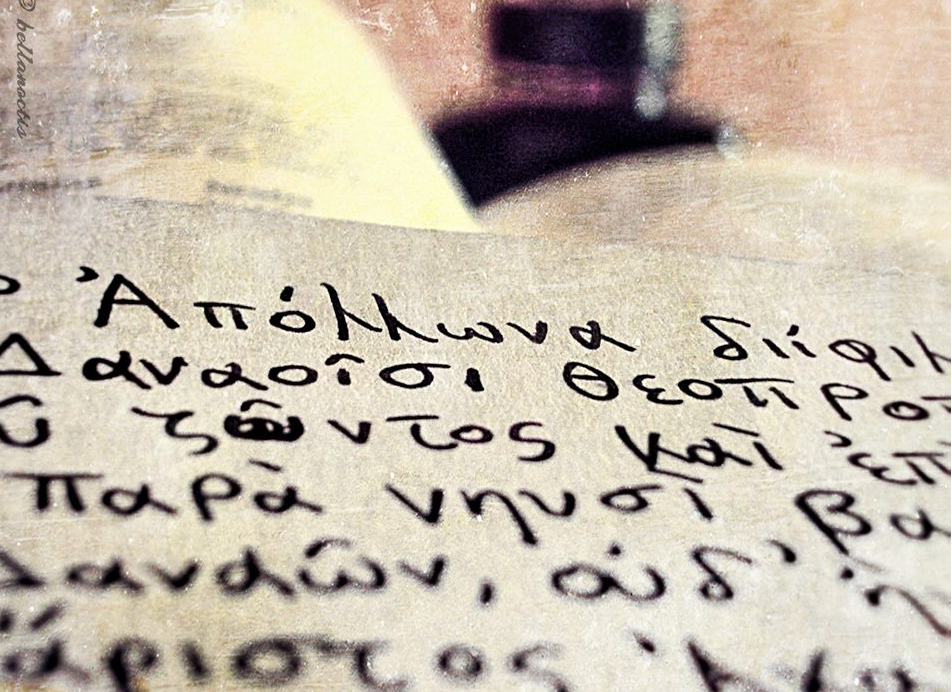 © bellanoctis
Ἀπόλλωνα διίφιλ
Δαναοῖσι θεοπροπ
ζῶντος καὶ ἐπ
παρὰ νηυσὶ βα
Δαναῶν, οὐδ'
ἄριστος Ἀχα